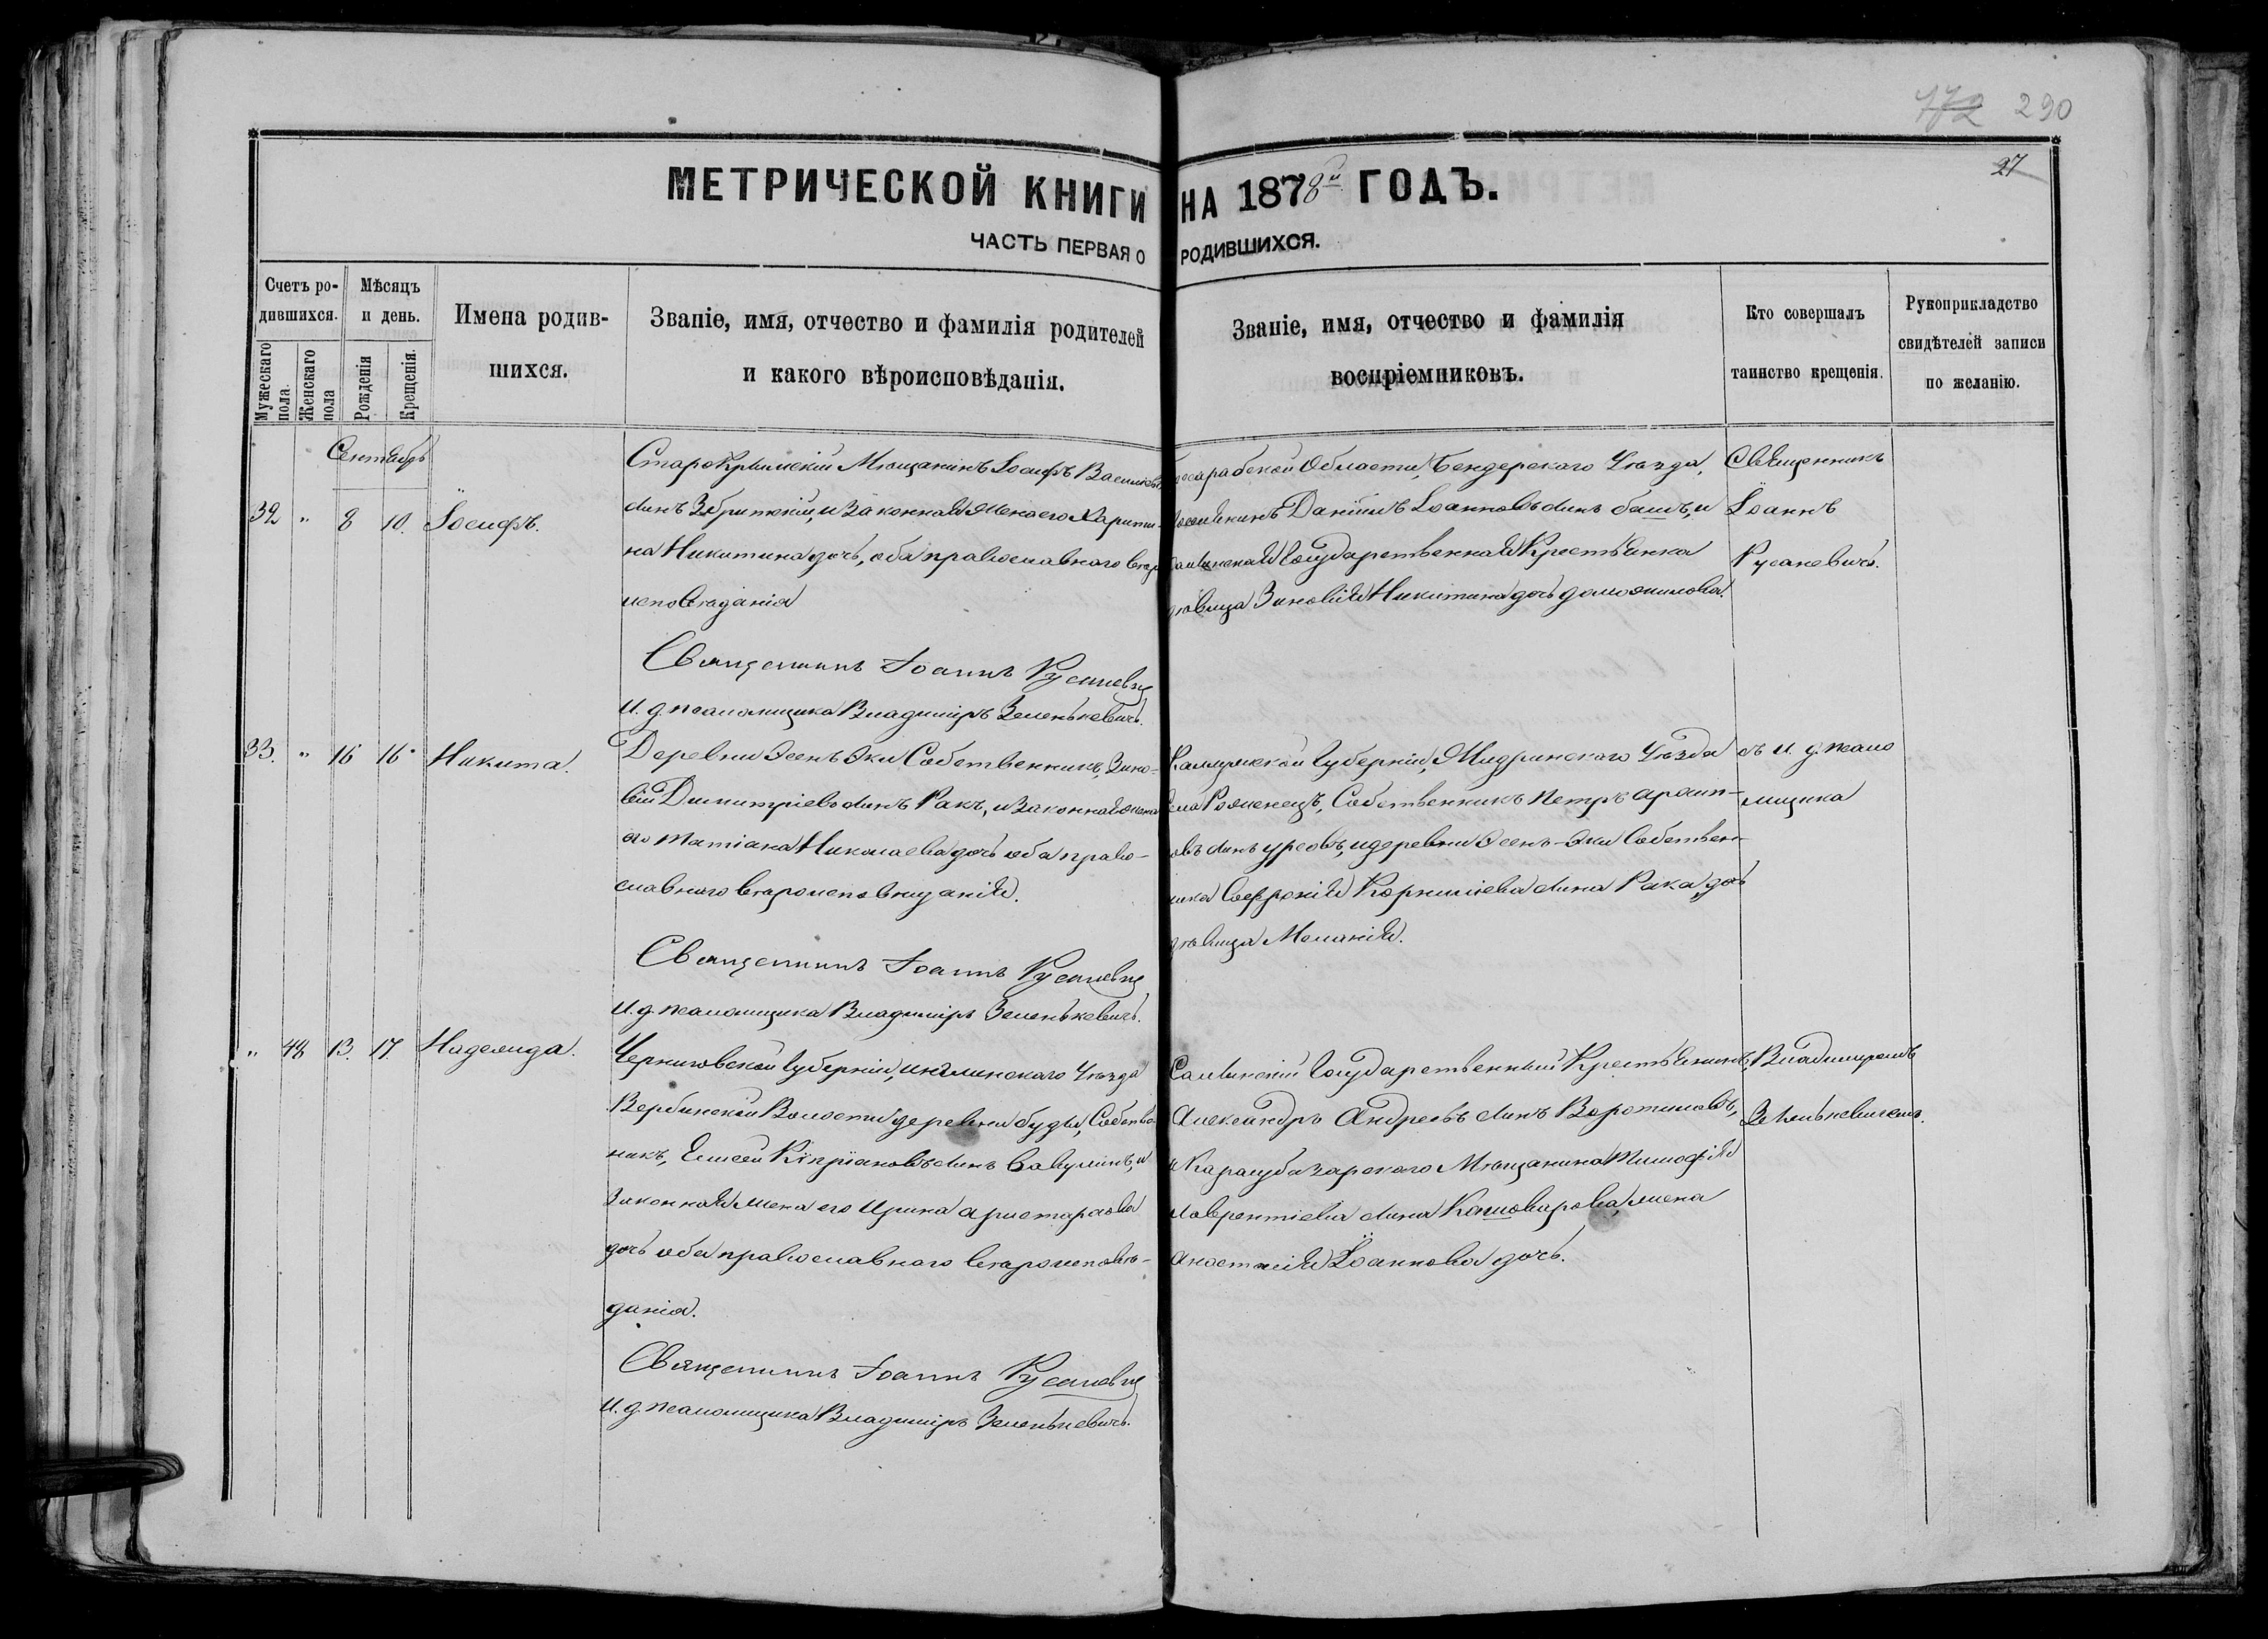 172 290
27
МЕТРИЧЕСКОЙ КНИГИ НА 1878й ГОДЪ.
ЧАСТЬ ПЕРВАЯ О РОДИВШИХСЯ.
Счетъ родившихся.
Мужескаго пола.
Женскаго пола
Мѣсяцъ и день.
Рожденія
Крещенія.
Имена родившихся.
Званіе, имя, отчество и фамилія родителей
и какого вѣроисповѣданія.
Званіе, имя, отчество и фамилія
воспріемниковъ.
Кто совершалъ
таинство крещенія.
Рукоприкладство
свидѣтелей записи
по желанію.
Сентябрь
32 " 8 10. Іосифъ.
СтароКрымскій Мѣщанинъ Іосифъ Васильевъ
сынъ и законная жена его Харити-
на Никитина дочь, оба православнаго вѣро
исповѣданія
Священникъ Іоаннъ Русаневичъ
И. д. псаломщика Владиміръ Зеленькевичъ.
Бессарабской Области, Бендерскаго Уѣзда,
Даніилъ Іоанновъ сынъ башъ, и
Государственная Крестьянка
дѣвица Зиновія Никитина дочь
Священникъ
Іоаннъ
Русаневичъ.
33. " 16 16 Никита.
Деревни Эсенъ Эки Собственникъ, Зино-
вій Димитріевъ сынъ Ракъ, и законная жена
его Татіана Николаева дочь оба право-
славнаго вѣроисповѣданія.
Священникъ Іоаннъ Русаневичъ
И. д. псаломщика Владиміръ Зеленькевичъ.
Губерніи, Уѣзда
села Собственникъ Петръ
сынъ и деревни Эсенъ-Эки Собствен-
ника Софронія Корниліева сына Рака, дочь
дѣвица Меланія.
съ И. д. псало
мщика
" 48 13. 17. Надежда.
Черниговской Губерніи, Уѣзда
Вербинской Волости деревни буды, Собствен
никъ, Елисей Кипріановъ сынъ и
Законная жена его Ирина аристархова
дочь оба православнаго вѣроисповѣ-
данія.
Священникъ Іоаннъ Русаневичъ
И. д. псаломщика Владиміръ Зеленькевичъ.
Государственный Крестьянинъ,
Александръ Андреевъ сынъ Воротиловъ,
и Карасубазарскаго Мѣщанина Тимофея
Лаврентіева сына жена
Іоаннова дочь.
Владиміромъ
Зенькевичемъ.